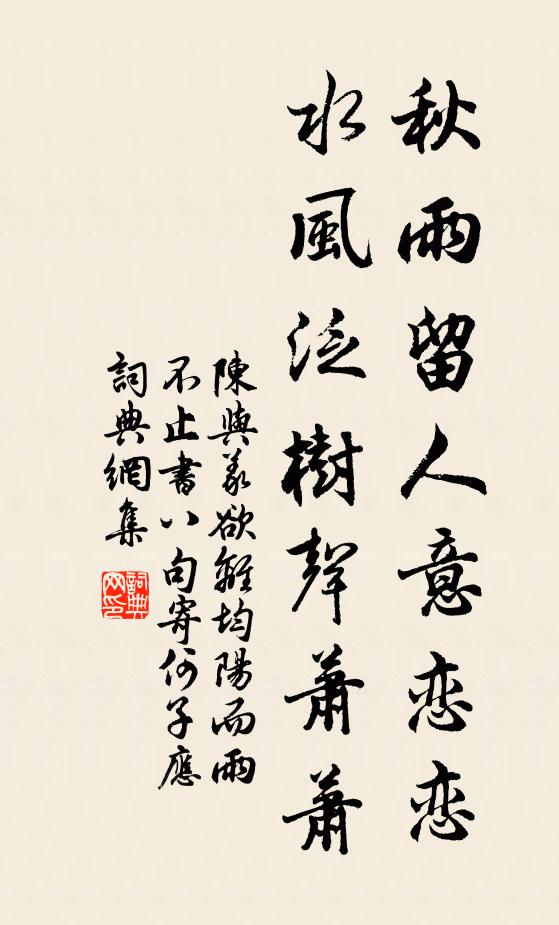 秋雨留人意戀戀
水風泛樹聲蕭蕭
陳與義欲離均陽而雨
不止書八句寄何子應
詞典網集
詞典网印